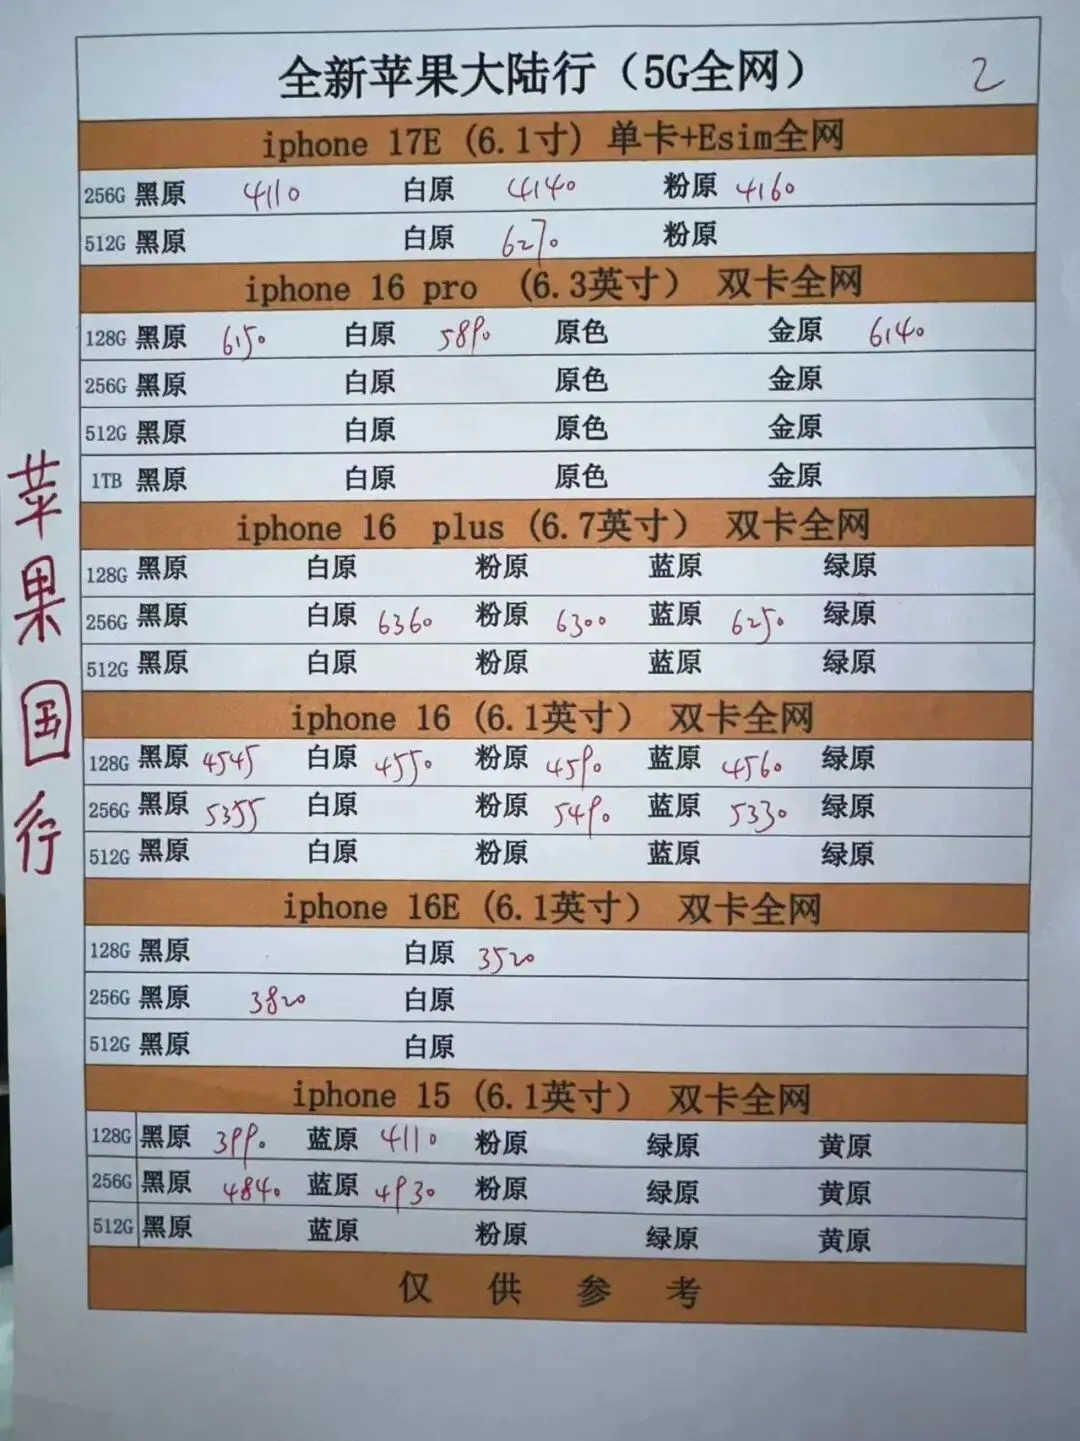 全新苹果大陆行（5G全网） 2
iphone 17E (6.1寸) 单卡+Esim全网
256G 黑原 4110 白原 4140 粉原 4160
512G 黑原 白原 6270 粉原
iphone 16 pro (6.3英寸) 双卡全网
128G 黑原 6150 白原 5890 原色 金原 6140
256G 黑原 白原 原色 金原
512G 黑原 白原 原色 金原
1TB 黑原 白原 原色 金原
iphone 16 plus (6.7英寸) 双卡全网
128G 黑原 白原 粉原 蓝原 绿原
256G 黑原 白原 6360 粉原 6300 蓝原 6250 绿原
512G 黑原 白原 粉原 蓝原 绿原
iphone 16 (6.1英寸) 双卡全网
128G 黑原 4545 白原 4550 粉原 4590 蓝原 4560 绿原
256G 黑原 5355 白原 粉原 5490 蓝原 5330 绿原
512G 黑原 白原 粉原 蓝原 绿原
iphone 16E (6.1英寸) 双卡全网
128G 黑原 白原 3520
256G 黑原 3820 白原
512G 黑原 白原
iphone 15 (6.1英寸) 双卡全网
128G 黑原 3990 蓝原 4110 粉原 绿原 黄原
256G 黑原 4840 蓝原 4930 粉原 绿原 黄原
512G 黑原 蓝原 粉原 绿原 黄原
仅供参考
苹果国行